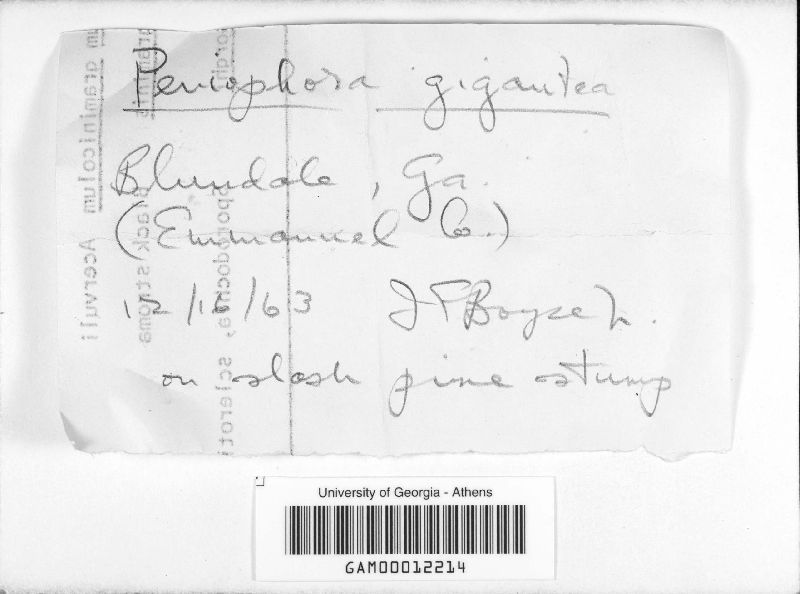 Peniophora gigantea
Blundale, Ga.
(Emmanuel Co.)
12/12/63 J S Boyce Jr.
on slash pine stump
um graminicolum Acervuli
graminis Black stroma
Sporodochia, scleroti
University of Georgia - Athens
GAM00012214